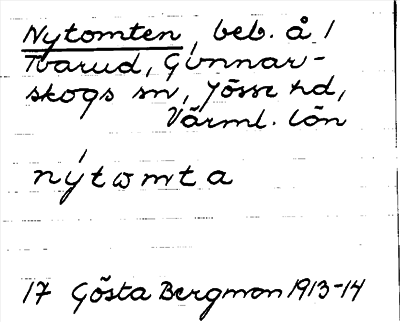 Nytomten, beb. å 1
Tvarud, Gunnar-
skogs sn, Jösse hd,
Värml. län
nýtωmta
17 Gösta Bergman 1913-14